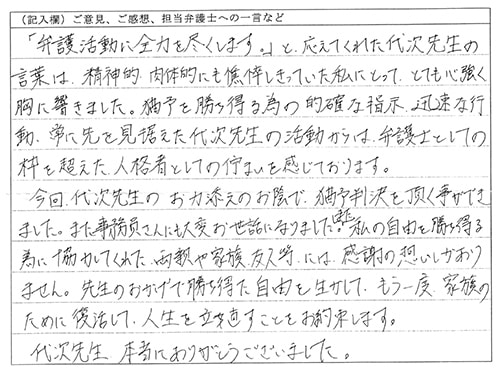 （記入欄）ご意見、ご感想、担当弁護士への一言など
「弁護活動に全力を尽くします。」と、応えてくれた代次先生の
言葉は、精神的、肉体的にも憔悴しきっていた私にとって、とても心強く
胸に響きました。猶予を勝ち得る為の的確な指示、迅速な行
動、常に先を見据えた代次先生の活動からは、弁護士としての
枠を超えた、人格者としての佇まいを感じております。
今回、代次先生のお力添えのお陰で、猶予判決を頂く事ができ
ました。また事務員さんにも大変お世話になりました。私の自由を勝ち得る
為に協力してくれた、両親や家族、友人等には、感謝の想いしかおり
ません。先生のおかげで勝ち得た自由を生かして、もう一度、家族の
ために復活して、人生を立ち直すことをお約束します。
代次先生、本当にありがとうございました。